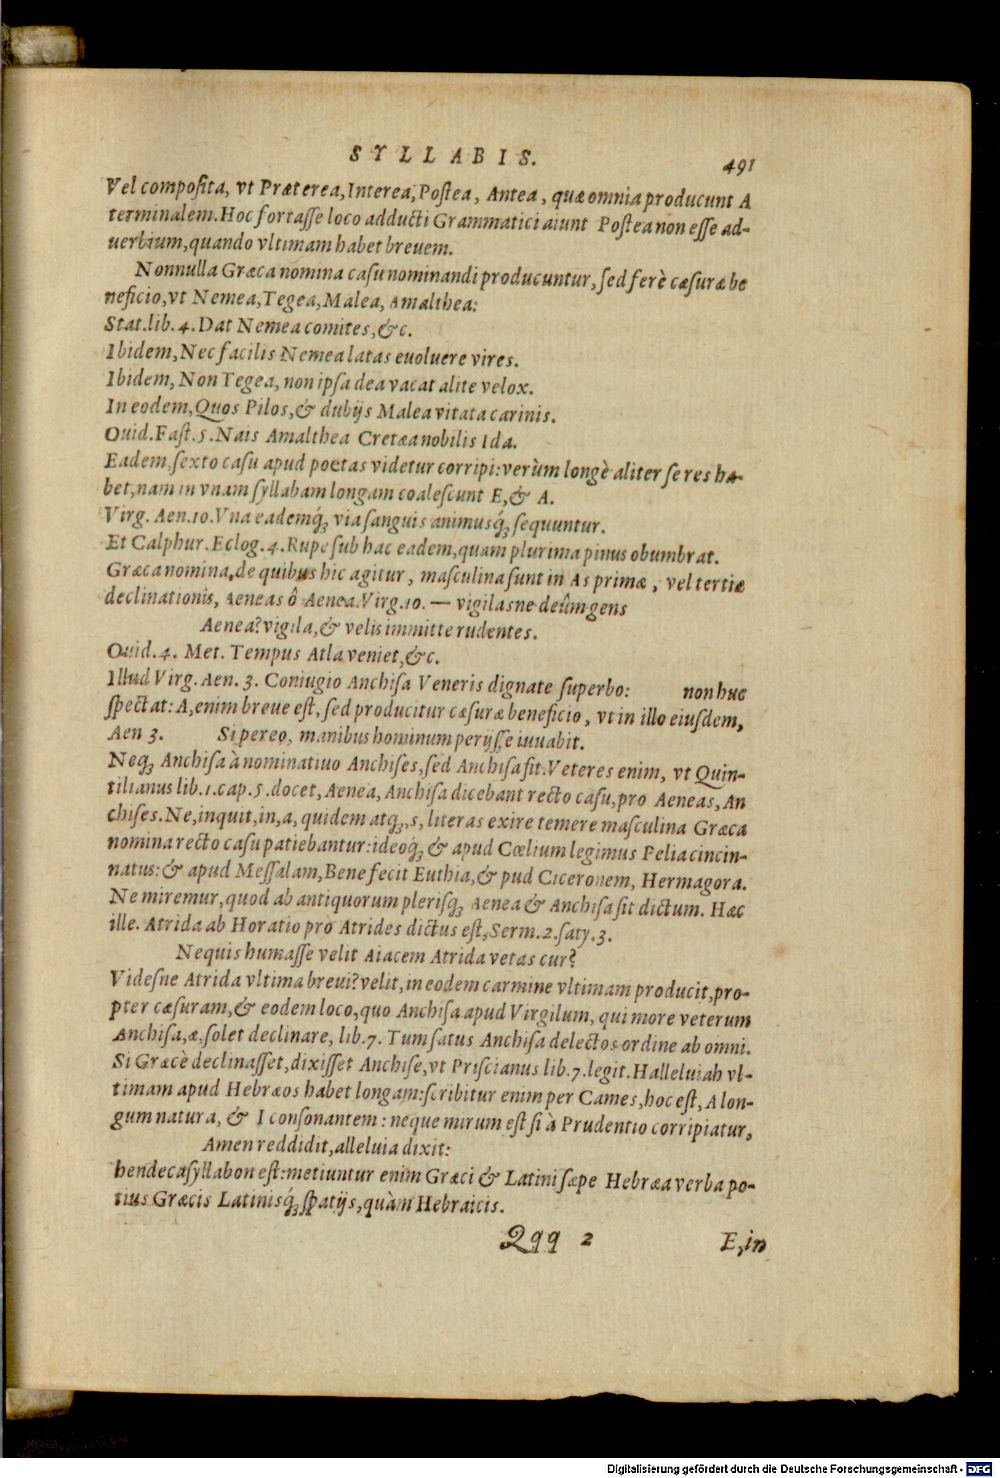 SYLLABIS. 491
Vel composita, vt Præterea, Interea, Postea, Antea, quæ omnia producunt A
terminalem. Hoc fortasse loco adducti Grammatici aiunt Postea non esse ad-
uerbium, quando vltimam habet breuem.
Nonnulla Græca nomina casu nominandi producuntur, sed ferè cæsuræ be
neficio, vt Nemea, Tegea, Malea, Amalthea:
Stat. lib. 4. Dat Nemea comites, &c.
Ibidem, Nec facilis Nemea latas euoluere vires.
Ibidem, Non Tegea, non ipsa dea vacat alite velox.
In eodem, Quos Pilos, & dubijs Malea vitata carinis.
Ouid. Fast. 5. Nais Amalthea Cretæa nobilis Ida.
Eadem, sexto casu apud poetas videtur corripi: verùm longè aliter se res ha-
bet, nam in vnam syllabam longam coalescunt E, & A.
Virg. Aen. 10. Vna eademq́ꝫ via sanguis animusq́ꝫ sequuntur.
Et Calphur. Eclog. 4. Rupe sub hac eadem, quam plurima pinus obumbrat.
Græca nomina, de quibus hic agitur, masculina sunt in As primæ, vel tertiæ
declinationis, Aeneas ô Aenea. Virg. 10. — vigilasne deûm gens
Aenea? vigila, & velis immitte rudentes.
Ouid. 4. Met. Tempus Atla veniet, &c.
Illud Virg. Aen. 3. Coniugio Anchisa Veneris dignate superbo: non huc
spectat: A, enim breue est, sed producitur cæsuræ beneficio, vt in illo eiusdem,
Aen 3. Si pereo, manibus hominum perijsse iuuabit.
Neqꝫ Anchisa à nominatiuo Anchises, sed Anchisa fit. Veteres enim, vt Quin-
tilianus lib. 1. cap. 5. docet, Aenea, Anchisa dicebant recto casu, pro Aeneas, An
chises. Ne, inquit, in, a, quidem atqꝫ, s, literas exire temere masculina Græca
nomina recto casu patiebantur: ideoqꝫ & apud Cœlium legimus Pelia cincin-
natus: & apud Messalam, Bene fecit Euthia, & pud Ciceronem, Hermagora.
Ne miremur, quod ab antiquorum plerisqꝫ Aenea & Anchisa sit dictum. Hæc
ille. Atrida ab Horatio pro Atrides dictus est, Serm. 2. saty. 3.
Nequis humasse velit Aiacem Atrida vetas cur?
Videsne Atrida vltima breui? velit, in eodem carmine vltimam producit, pro-
pter cæsuram, & eodem loco, quo Anchisa apud Virgilum, qui more veterum
Anchisa, æ, solet declinare, lib. 7. Tum satus Anchisa delectos ordine ab omni.
Si Græcè declinasset, dixisset Anchise, vt Priscianus lib. 7. legit. Halleluiah vl-
timam apud Hebræos habet longam: scribitur enim per Cames, hoc est, A lon-
gum natura, & I consonantem: neque mirum est si à Prudentio corripiatur,
Amen reddidit, alleluia dixit:
hendecasyllabon est: metiuntur enim Græci & Latini sæpe Hebræa verba po-
tius Græcis Latinisq́ꝫ spatijs, quàm Hebraicis.
Qqq 2 E, in
Digitalisierung gefördert durch die Deutsche Forschungsgemeinschaft - DFG